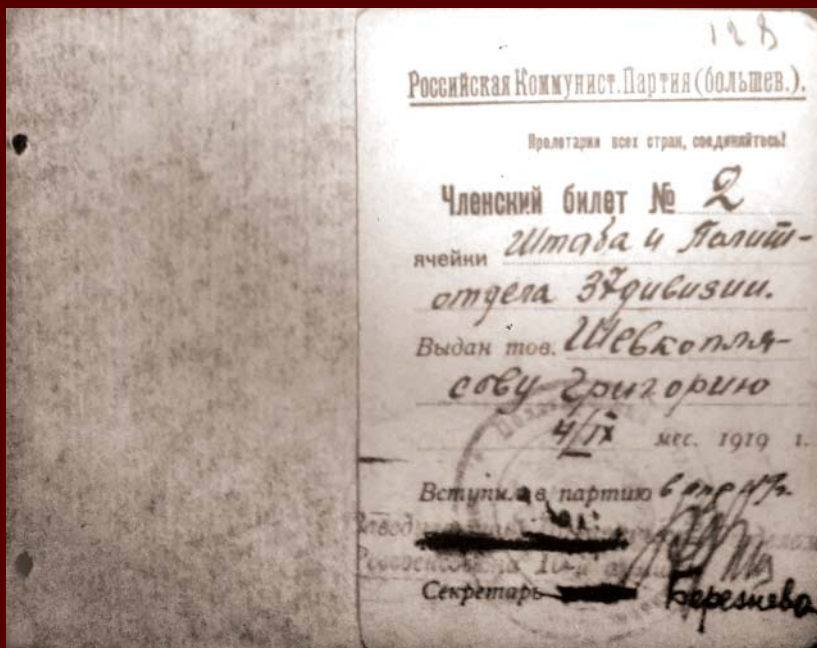 128
Российская Коммунист. Партия (большев.).
Пролетарии всех стран, соединяйтесь!
Членский билет № 2
ячейки Штаба и Полит-
отдела 37 дивизии.
Выдан тов. Шевкопля-
сову Григорию
4/IX мес. 1919 г.
Вступил в партию в апр
Секретарь Березнева